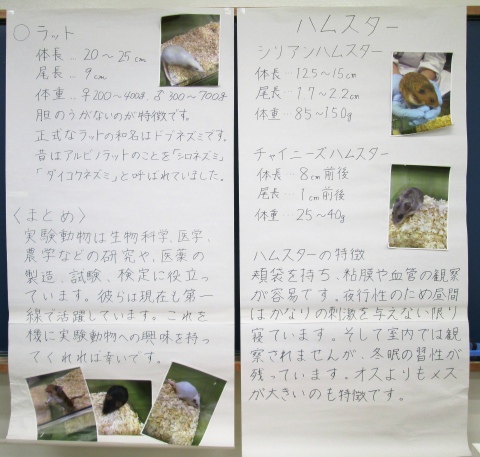 ○ラット
体長‥20～25cm
尾長‥9cm
体重‥♀200～400g.♂300～700g
胆のうがないのが特徴です。
正式なラットの和名はドブネズミです。
昔はアルビノラットのことを「シロネズミ」
「ダイコクネズミ」と呼ばれていました。
〈まとめ〉
実験動物は生物科学、医学、
農学などの研究や、医薬の
製造、試験、検定に役立っ
ています。彼らは現在も第一
線で活躍しています。これを
機に実験動物への興味を持っ
てくれれば幸いです。
ハムスター
シリアンハムスター
体長…12.5～15cm
尾長…1.7～2.2cm
体重…85～150g
チャイニーズハムスター
体長…8cm前後
尾長…1cm前後
体重…25～40g
ハムスターの特徴
頬袋を持ち、粘膜や血管の観察
が容易です。夜行性のため昼間
はかなりの刺激を与えない限り
寝ています。そして室内では観
察されませんが、冬眠の習性が
残っています。オスよりもメス
が大きいのも特徴です。